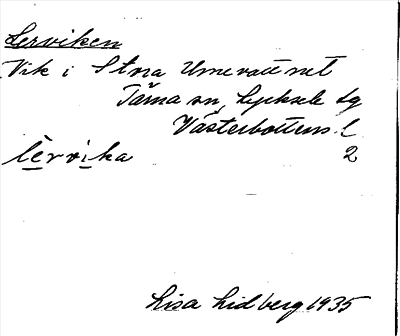 Lerviken
Vik i Stra Umevattnet
Tärna sn, Lycksele tg
Västerbottens l.
lèrvika 2
Lisa Lidberg 1935